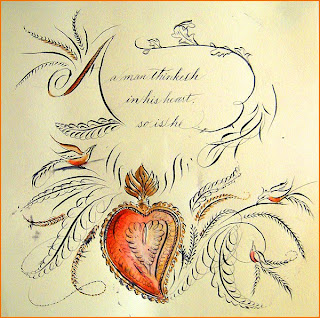 a man thinketh
in his heart,
so is he